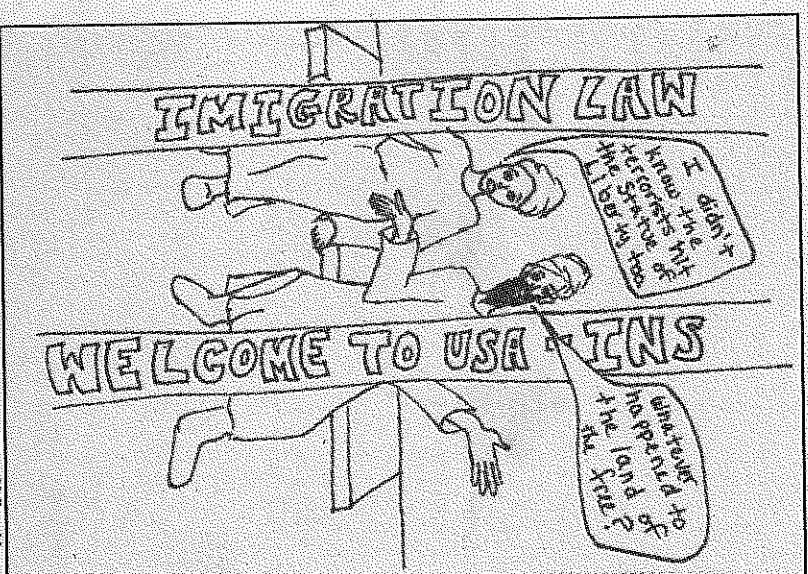 IMIGRATION LAW
I didn't
know the
terrorists hit
the Statue of
Liberty, too.
WELCOME TO USA - INS
Whatever
happened to
the land of
the free?